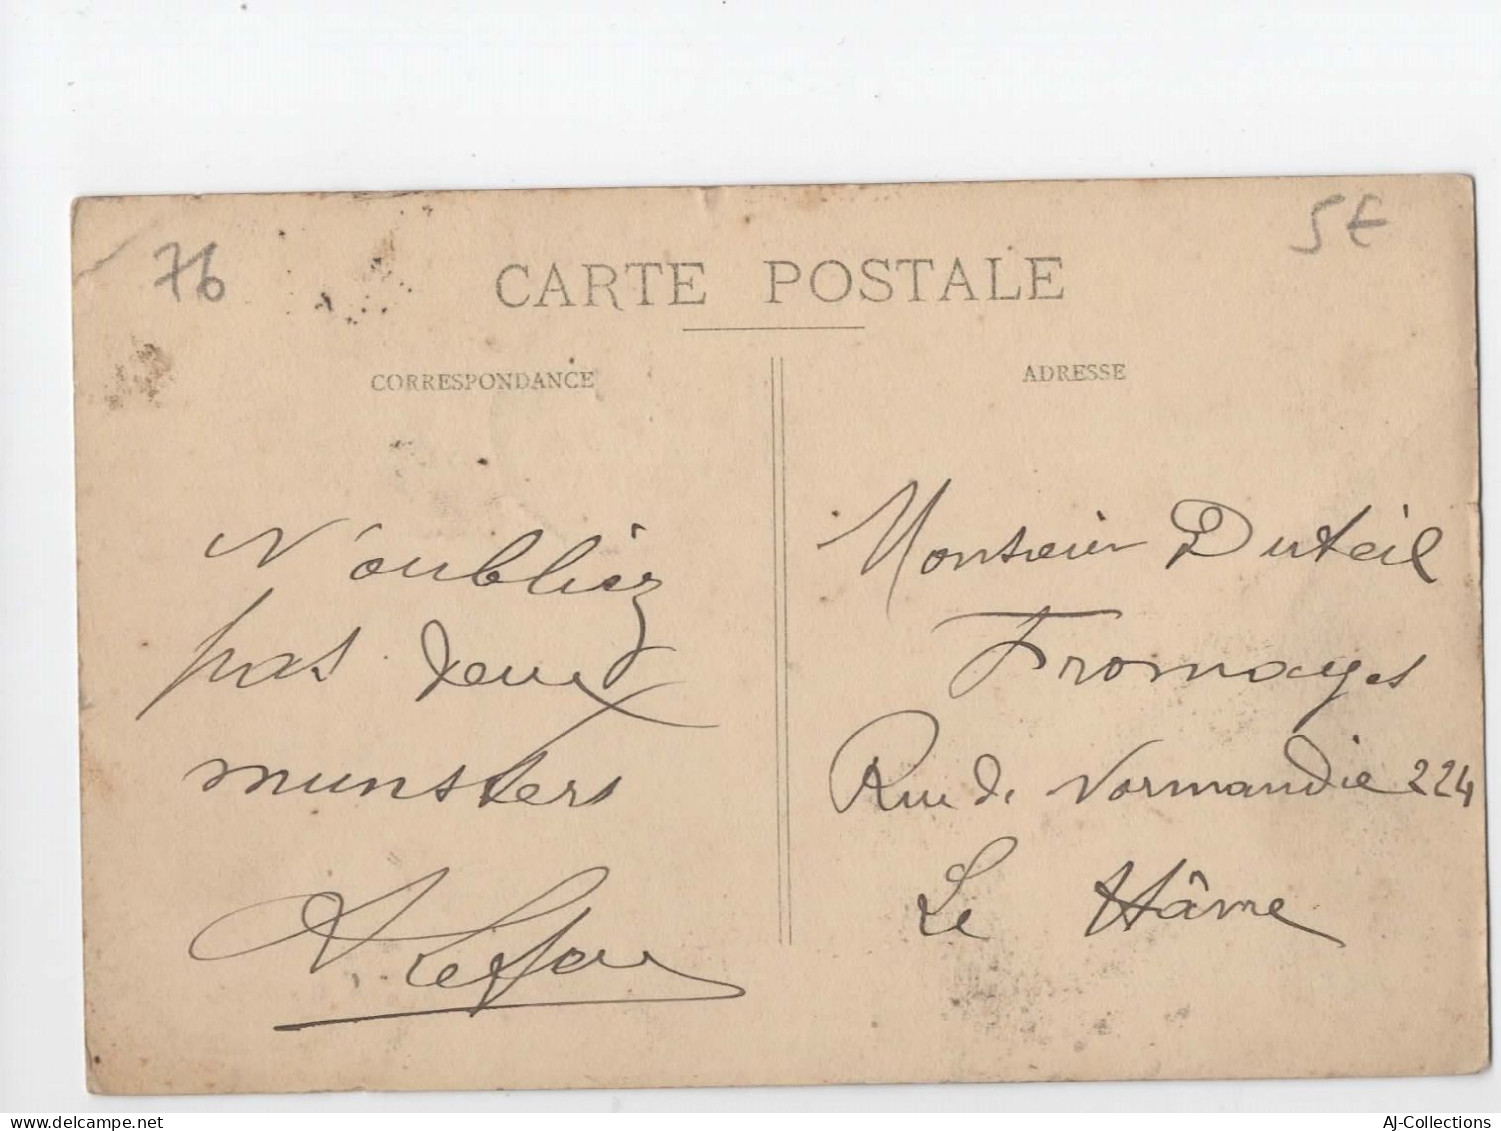 76
5€
CARTE POSTALE
CORRESPONDANCE
ADRESSE
N'oubliez
pas deux
munsters
Monsieur Duteil
Fromages
Rue de Normandie 224
Le Hâvre
delcampe.net
AJ-Collections